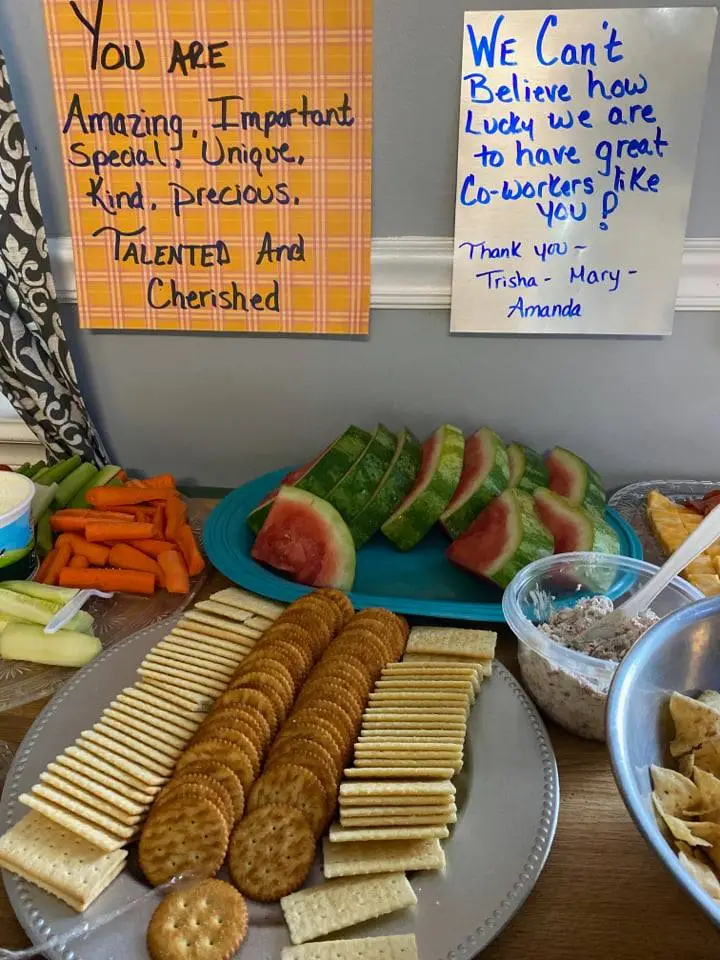 You ARE
Amazing, Important
Special, Unique,
Kind, precious,
TALENTED And
Cherished
WE Can't
Believe how
Lucky we are
to have great
Co-workers like
YOU !
Thank you ~
Trisha - Mary -
Amanda